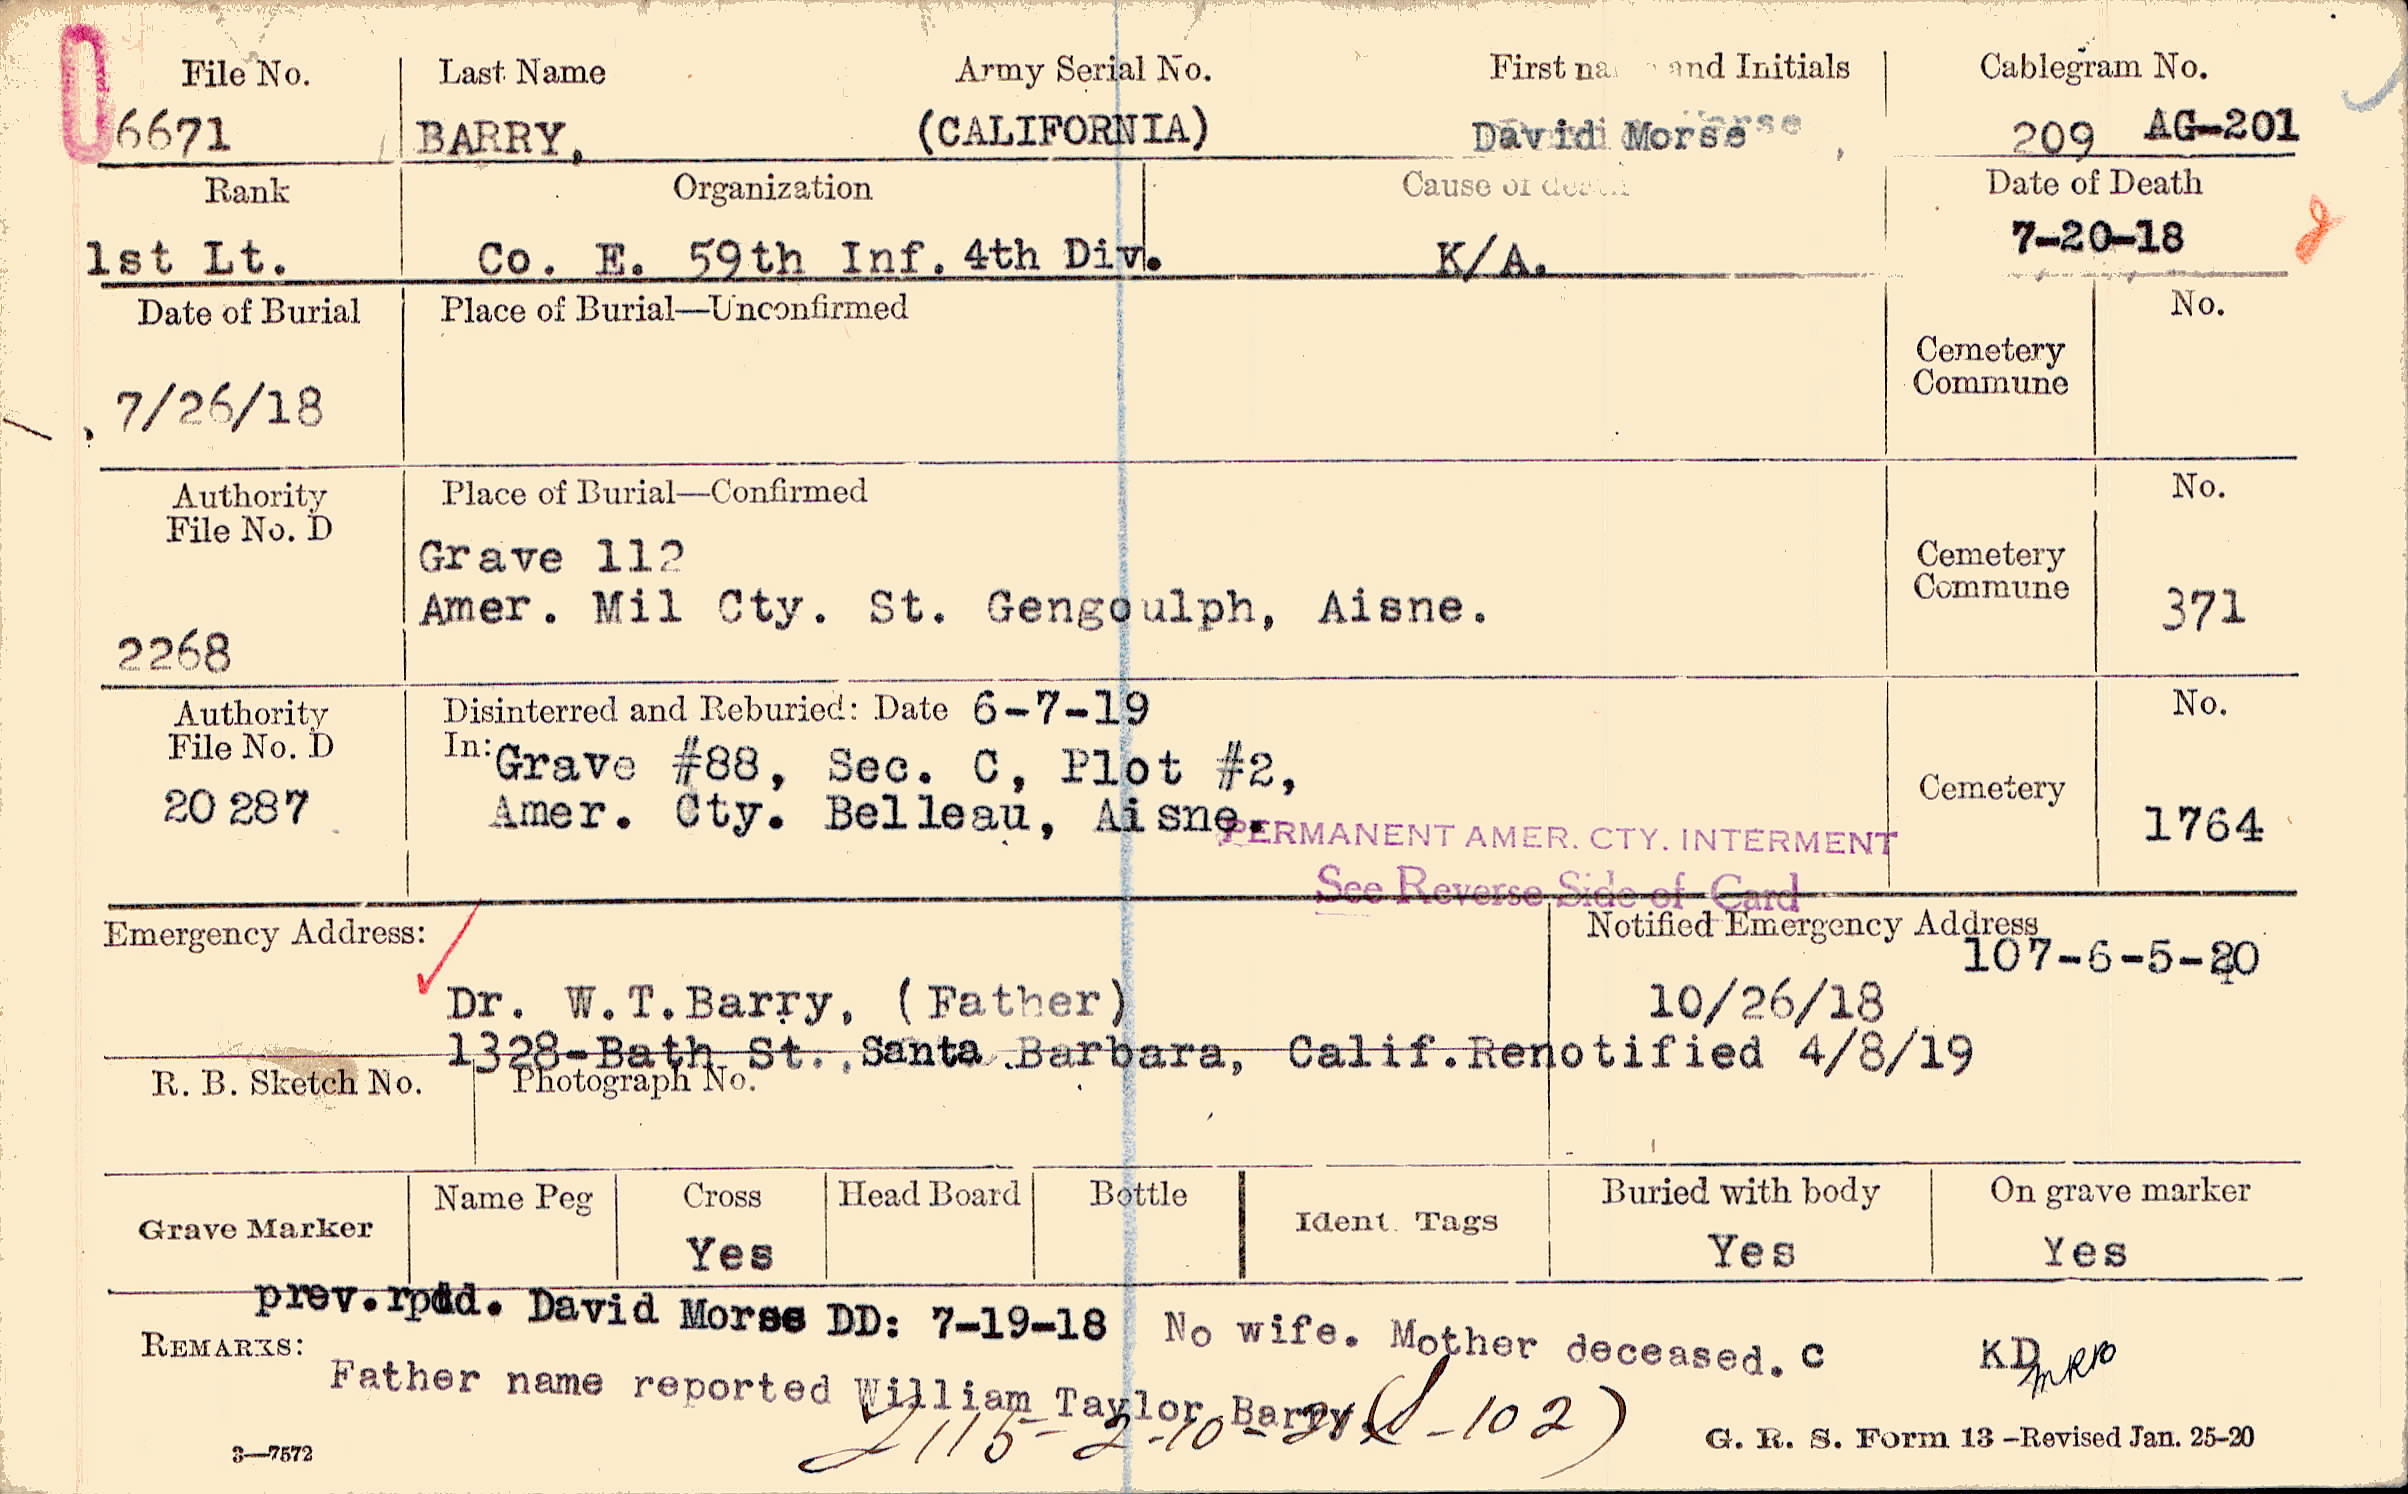 File No. Last Name Army Serial No. First na and Initials Cablegram No.
6671 BARRY, (CALIFORNIA) David Morse, 209 AG-201
Rank Organization Cause of death Date of Death
1st Lt. Co. E. 59th Inf. 4th Div. K/A. 7-20-18
Date of Burial Place of Burial—Unconfirmed No.
Cemetery
Commune
7/26/18
Authority Place of Burial—Confirmed No.
File No. D
Grave 112
Cemetery
Commune
Amer. Mil Cty. St. Gengoulph, Aisne. 371
2268
Authority Disinterred and Reburied: Date 6-7-19 No.
File No. D In: Grave #88, Sec. C, Plot #2,
Cemetery
20 287 Amer. Cty. Belleau, Aisne. 1764
PERMANENT AMER. CTY. INTERMENT
See Reverse Side of Card
Emergency Address: Notified Emergency Address
107-6-5-20
Dr. W.T.Barry, (Father) 10/26/18
1328-Bath St., Santa Barbara, Calif. Renotified 4/8/19
R. B. Sketch No. Photograph No.
Name Peg Cross Head Board Bottle Buried with body On grave marker
Grave Marker Ident. Tags
Yes Yes Yes
prev.rpdd. David Morss DD: 7-19-18 No wife. Mother deceased. C KD
REMARKS:
Father name reported William Taylor Barry.
2115-2-10-21 -102)
3—7572 G. R. S. Form 13 -Revised Jan. 25-20